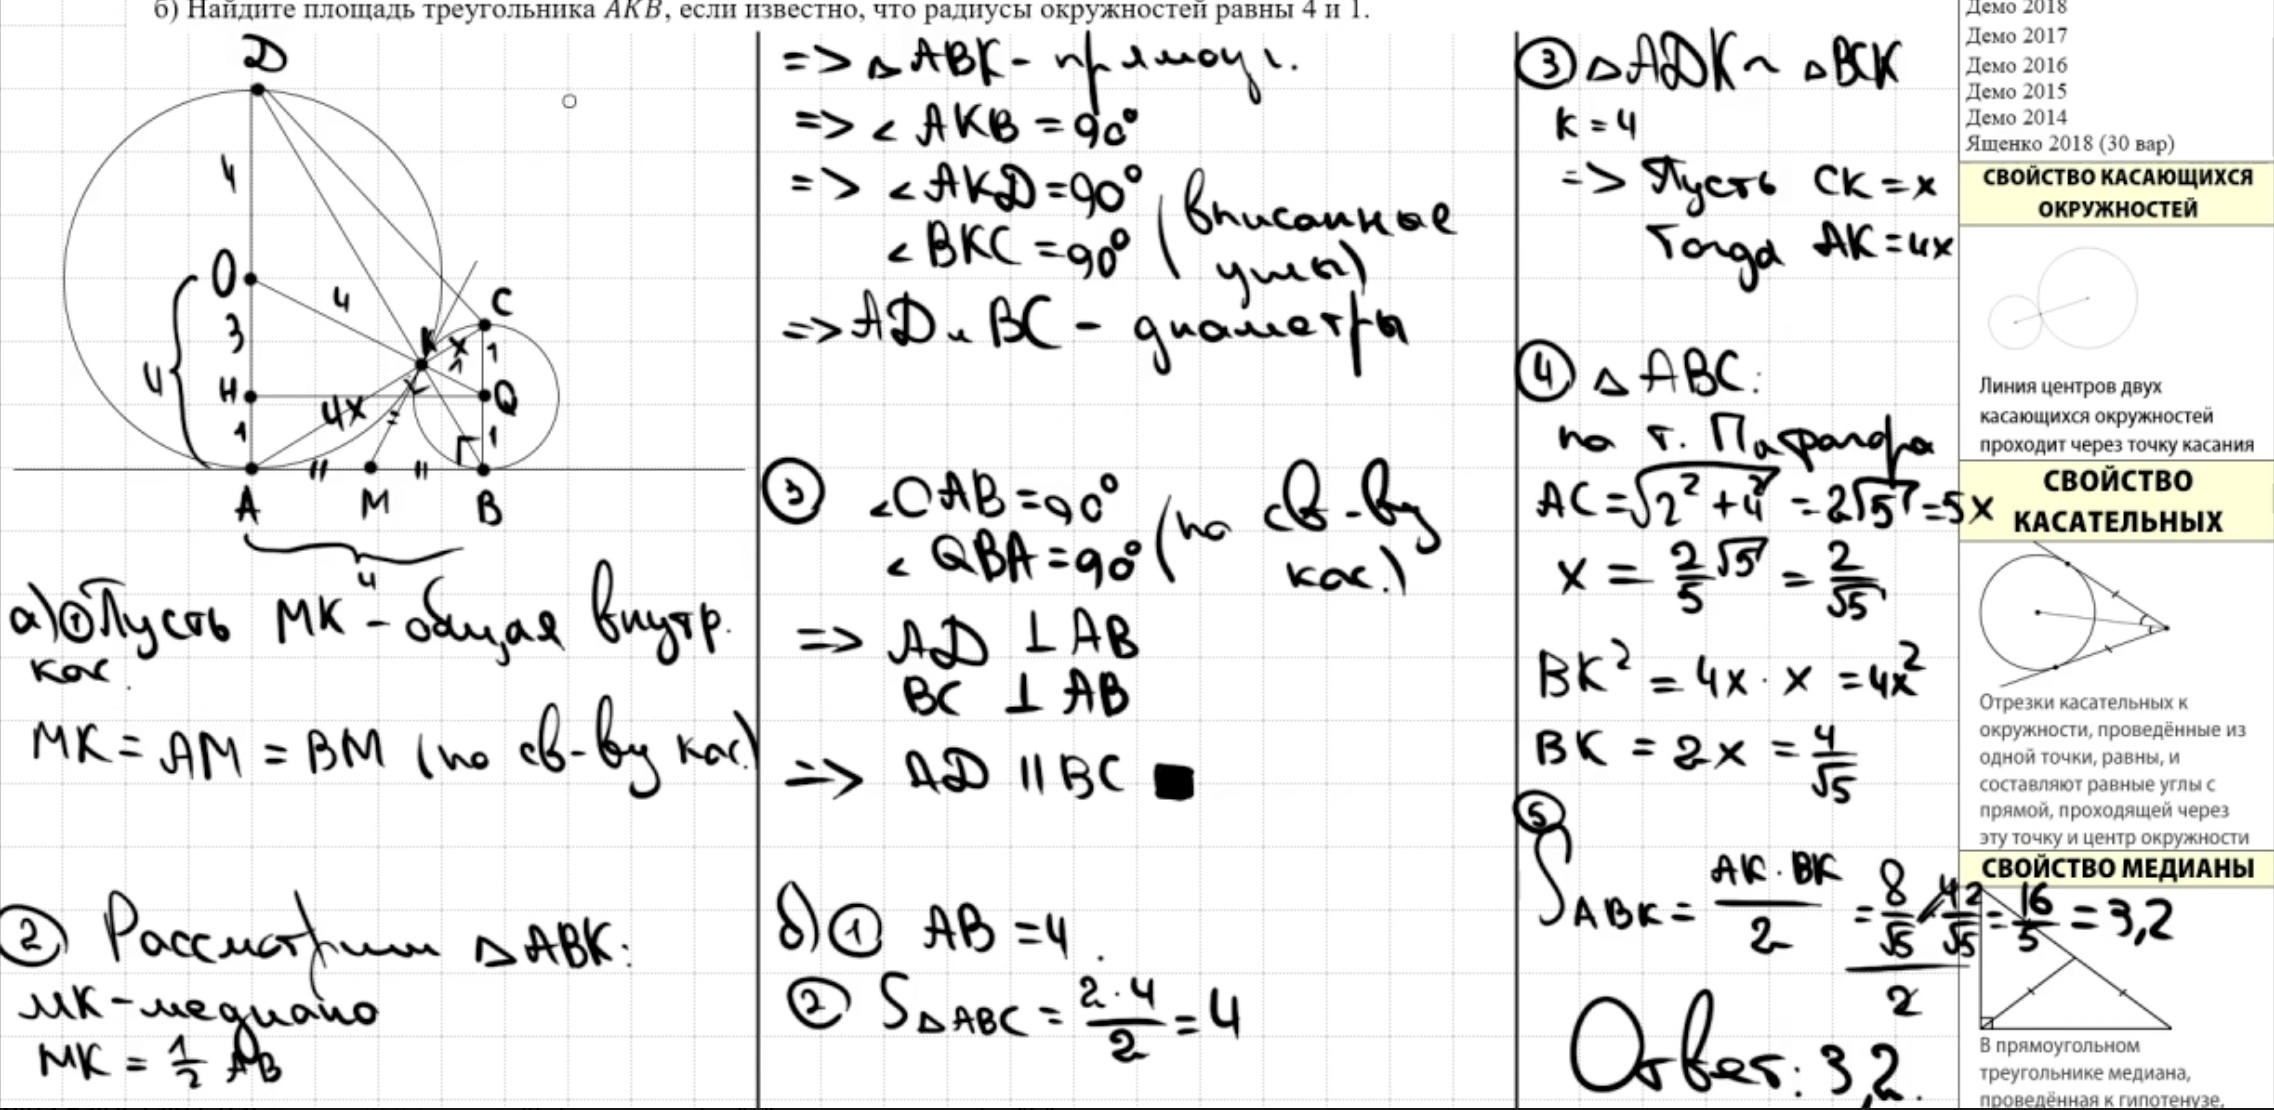 б) Найдите площадь треугольника AKB, если известно, что радиусы окружностей равны 4 и 1.
D
4
O
4
4
3
H
1
4x
K
x
1
C
1
Q
1
A
M
B
4
а) ① Пусть MK - общая внутр.
кас.
MK = AM = BM (по св-ву кас.)
② Рассмотрим △ABK:
MK - медиана
MK = 1/2 AB
=> △ABK - прямоуг.
=> ∠AKB = 90°
=> ∠AKD = 90°
∠BKC = 90° (вписанные углы)
=> AD и BC - диаметры
③ ∠OAB = 90°
∠QBA = 90° (по св-ву кас.)
=> AD ⊥ AB
BC ⊥ AB
=> AD || BC ■
б) ① AB = 4.
② S△ABC = 2·4/2 = 4
③ △ADK ~ △BCK
k = 4
=> Пусть CK = x
Тогда AK = 4x
④ △ABC:
по т. Пифагора
AC = √(2² + 4²) = 2√5 = 5x
x = 2/5 √5 = 2/√5
BK² = 4x · x = 4x²
BK = 2x = 4/√5
⑤
S ABK = AK·BK/2 = (8/√5 · 4/√5)/2 = 16/5 = 3,2
Ответ: 3,2.
Демо 2018
Демо 2017
Демо 2016
Демо 2015
Демо 2014
Ященко 2018 (30 вар)
СВОЙСТВО КАСАЮЩИХСЯ
ОКРУЖНОСТЕЙ
Линия центров двух
касающихся окружностей
проходит через точку касания
СВОЙСТВО
КАСАТЕЛЬНЫХ
Отрезки касательных к
окружности, проведённые из
одной точки, равны, и
составляют равные углы с
прямой, проходящей через
эту точку и центр окружности
СВОЙСТВО МЕДИАНЫ
В прямоугольном
треугольнике медиана,
проведённая к гипотенузе,